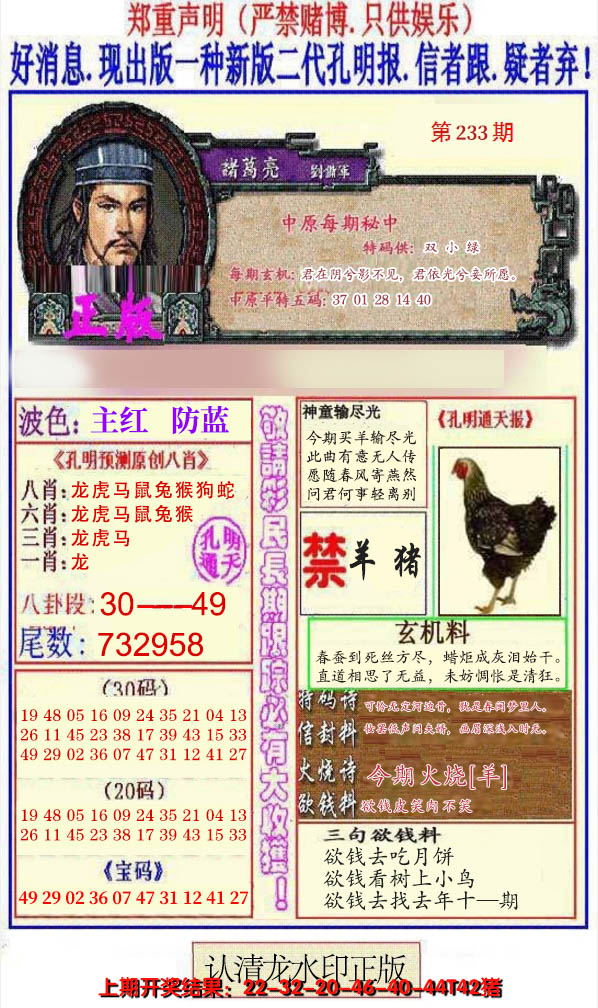 郑重声明（严禁赌博.只供娱乐）
好消息.现出版一种新版二代孔明报.信者跟.疑者弃！
第233期
諸葛亮 劉備軍
中原每期秘中
特码供：双小绿
每期玄机：君在阴兮影不见，君依光兮妾所愿。
中原平特五码：37 01 28 14 40
正版
波色：主红 防蓝
《孔明预测原创八肖》
八肖：龙虎马鼠兔猴狗蛇
六肖：龙虎马鼠兔猴
三肖：龙虎马
一肖：龙
孔明
通天
八卦段：30-----49
尾数：732958
（30码）
19 48 05 16 09 24 35 21 04 13
26 11 45 23 38 17 39 43 15 33
49 29 02 36 07 47 31 12 41 27
（20码）
19 48 05 16 09 24 35 21 04 13
26 11 45 23 38 17 39 43 15 33
《宝码》
49 29 02 36 07 47 31 12 41 27
敬請彩民長期跟踪必有大收獲！
神童输尽光
今期买羊输尽光
此曲有意无人传
愿随春风寄燕然
问君何事轻离别
《孔明通天报》
禁 羊 猪
玄机料
春蚕到死丝方尽，蜡炬成灰泪始干。
直道相思了无益，未妨惆怅是清狂。
特码诗 可怜无定河边骨，犹是春闺梦里人。
信封料 妆罢低声问夫婿，画眉深浅入时无。
火烧诗 今期火烧[羊]
欲钱料 欲钱皮笑肉不笑
三句欲钱料
欲钱去吃月饼
欲钱看树上小鸟
欲钱去找去年十一期
认清龙水印正版
上期开奖结果：22-32-20-46-40-44T42猪